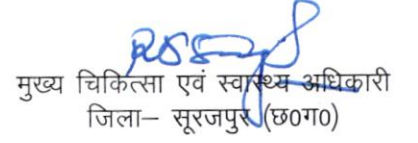 मुख्य चिकित्सा एवं स्वास्थ्य अधिकारी
जिला– सूरजपुर (छ0ग0)